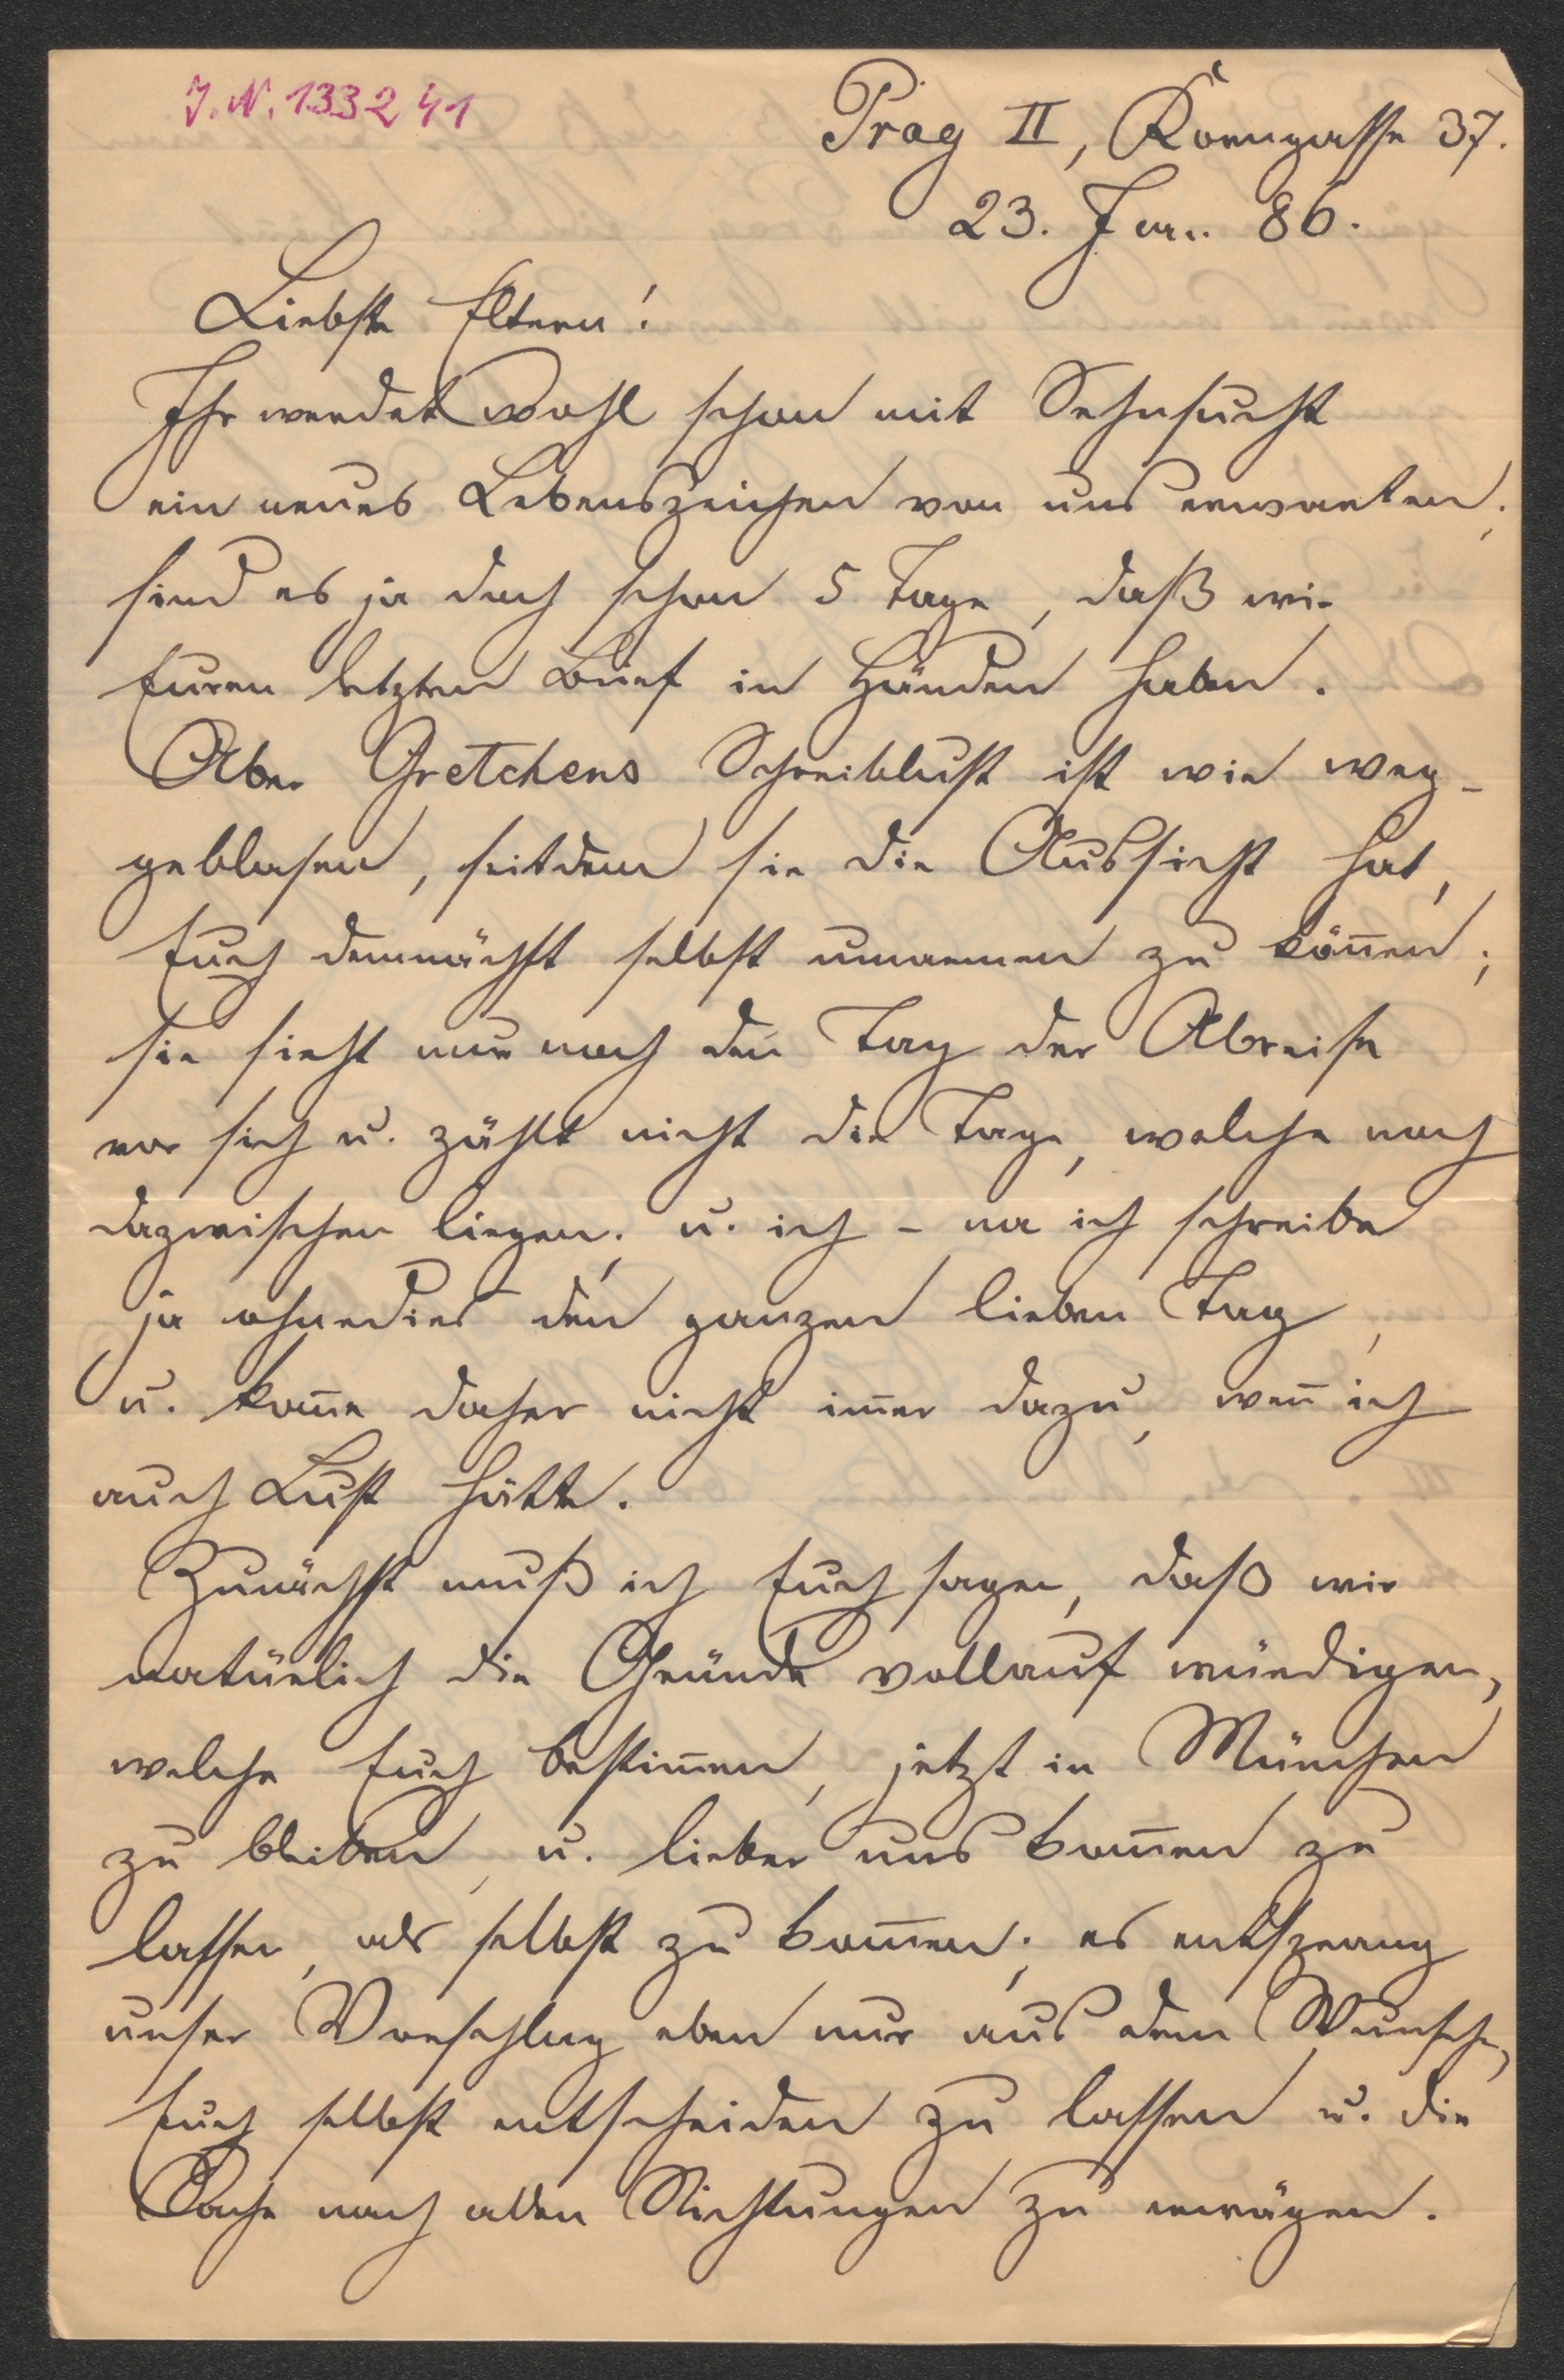 J. N. 133241
Prag II, Korngasse 37.
23. Jan. 86.
Liebste Eltern!
Ihr werdet wohl schon mit Sehnsucht
ein neues Lebenszeichen von uns erwarten;
sind es ja doch schon 5 Tage, daß wir
Euren letzten Brief in Händen haben.
Aber Gretchens Schreiblust ist wie weg-
geblasen, seitdem sie die Aussicht hat,
Euch demnächst selbst umarmen zu kön̄en;
sie sieht nur noch den Tag der Abreise
vor sich u. zählt nicht die Tage, welche noch
dazwischen liegen; u. ich – na ich schreibe
ja ohnedies den ganzen lieben Tag,
u. kom̄e daher nicht im̄er dazu, wen̄ ich
auch Lust hätte.
Zunächst muß ich Euch sagen, daß wir
natürlich die Gründe vollauf würdigen,
welche Euch bestim̄en, jetzt in München
zu bleiben, u. lieber uns kom̄en zu
lassen, als selbst zu kom̄en; es entsprang
unser Vorschlag eben nur aus dem Wunsche,
Euch selbst entscheiden zu lassen u. die
Sache nach allen Richtungen zu erwägen.